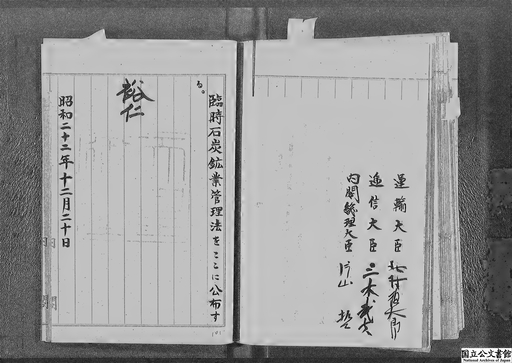 臨時石炭鉱業管理法をここに公布す
る。
裕仁
昭和二十二年十二月二十日
内閣総理大臣 片山 哲
逓信大臣 三木武夫
運輸大臣
国立公文書館
National Archives of Japan